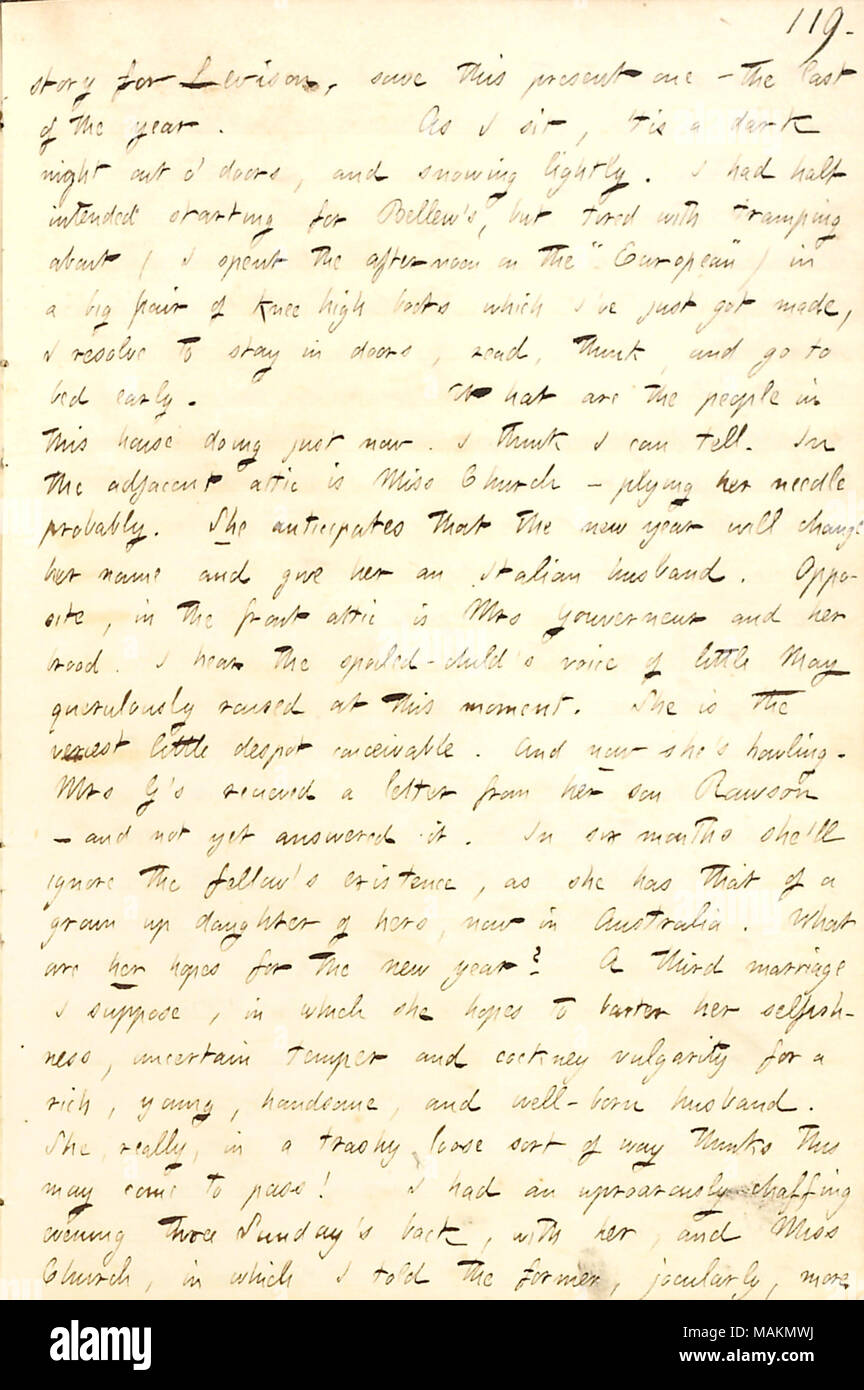 119.
story for Levison, save this present one - the last
of the year. As I sit, 'tis a dark
night out o' doors, and snowing lightly. I had half
intended starting for Bellew's, but tired with tramping
about ( I spent the afternoon on the "European" ) in
a big pair of knee high boots which I've just got made,
I resolve to stay in doors, read, think, and go to
bed early. What are the people in
this house doing just now. I think I can tell. In
the adjacent attic is Miss Church - plying her needle
probably. She anticipates that the new year will change
her name and give her an Italian husband. Oppo-
site, in the front attic is Mrs Gouverneur and her
brood. I hear the spoiled-child's voice of little May
querulously raised at this moment. She is the
veriest little despot conceivable. And now she's howling.
Mrs G's recieved a letter from her son Rawson
- and not yet answered it. In six months she'll
ignore the fellow's existence, as she has that of a
grown up daughter of hers, now in Australia. What
are her hopes for the new year? A third marriage
I suppose, in which she hopes to barter her selfish-
ness, uncertain temper and cockney vulgarity for a
rich, young, handsome, and well-born husband.
She, really, in a trashy loose sort of way thinks this
may come to pass! I had an uproarously chaffing
evening two Sunday's back, with her, and Miss
Church, in which I told the former, jocularly, more
alamy
Image ID: MAKMWJ
www.alamy.com